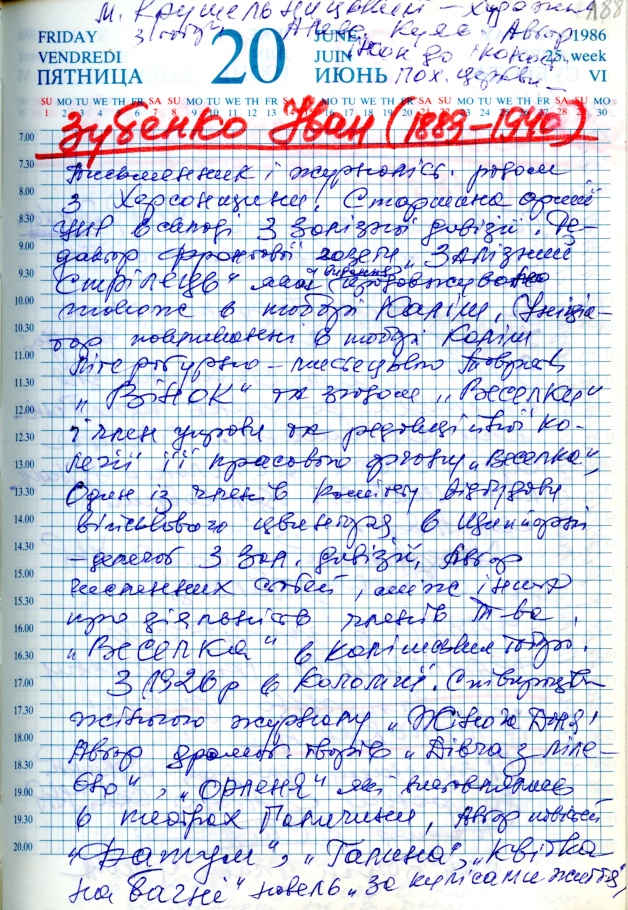 М. Крушельницький – Художник
З

FRIDAY
VENDREDI
ПЯТНИЦА
20
JUNE
JUIN
ИЮНЬ
1986
25. week
VI
188
SU MO TU WE TH FR SA SU MO TU WE TH FR SA SU MO TU WE TH FR SA SU MO TU WE TH FR SA SU MO
1 2 3 4 5 6 7 8 9 10 11 12 13 14 15 16 17 18 19 20 21 22 23 24 25 26 27 28 29 30
Зубенко Іван (1889–1940)
7.00
7.30
8.00
8.30
9.00
9.30
10.00
10.30
11.00
11.30
12.00
12.30
13.00
13.30
14.00
14.30
15.00
15.30
16.00
16.30
17.00
17.30
18.00
18.30
19.00
19.30
20.00
Письменник і журналіст. родом
з Херсонщини. Старшина армії
УНР в складі 3 Залізної дивізії. Ре-
дактор фронтової газети "Залізний
Стрілець" якої видання продовжувано
також в таборі Каліш. Ініціа-
тор в таборі Каліш
літературно-мистецького Товариства
"Вінок" та згодом "Веселки"
і член управи та редакційної ко-
легії її пресового органу "Веселка",
Один із членів комітету відбудови
військового цвинтаря в Щипіорні
– делегат 3 Зал. дивізії, Автор
численних статей, між іншим
про діяльність членів Т-ва
"Веселка" в таборі.
З 1920 р в Коломиї. Співпрацівн
жіночого журналу "Жіноча Доля"
Автор драмат. творів "Дівча з ліле-
єю", "Орленя" які виставлялися
в театрах Галичини, Автор повістей
"Фатум", "Галина", "Квітка
на багні" новель "За кулісами життя",